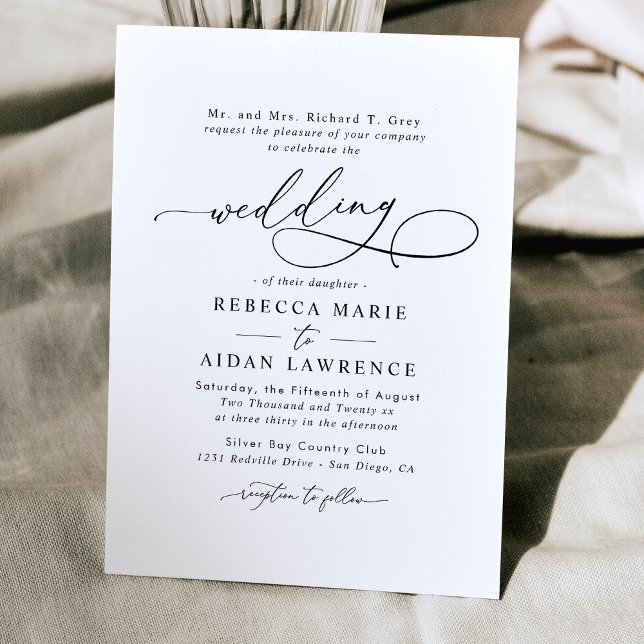 Mr. and Mrs. Richard T. Grey
request the pleasure of your company
to celebrate the
wedding
- of their daughter -
REBECCA MARIE
to
AIDAN LAWRENCE
Saturday, the Fifteenth of August
Two Thousand and Twenty xx
at three thirty in the afternoon
Silver Bay Country Club
1231 Redville Drive - San Diego, CA
reception to follow